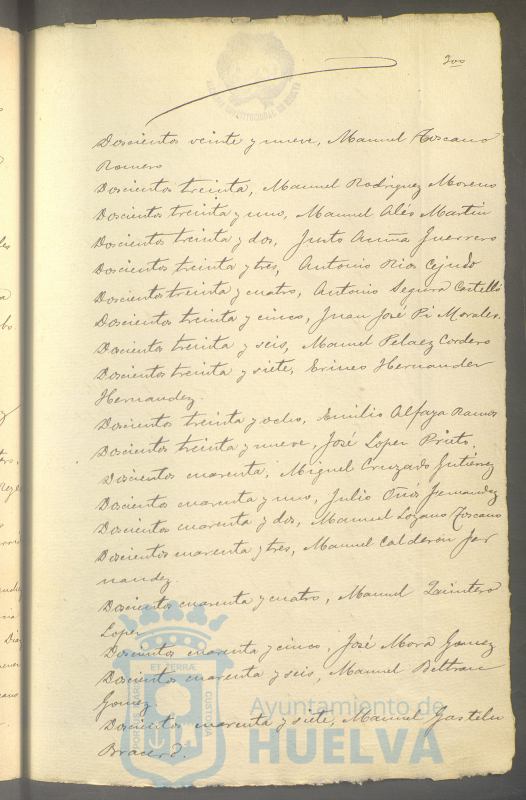 200
Doscientos veinte y nueve, Manuel Toscano
Romero
Doscientos treinta, Manuel Rodriguez Moreno
Doscientos treinta y uno, Manuel Alés Martin
Doscientos treinta y dos, Justo Acuña Guerrero
Doscientos treinta y tres, Antonio Rios Cejudo
Doscientos treinta y cuatro, Antonio Segura Castelló
Doscientos treinta y cinco, Juan José Pi Morales.
Doscientos treinta y seis, Manuel Pelaez Cordero
Doscientos treinta y siete, Erineo Hernandez
Hernandez.
Doscientos treinta y ocho, Emilio Alfaya Ramos
Doscientos treinta y nueve, José Lopez Prieto.
Doscientos cuarenta, Miguel Cruzado Gutiérrez
Doscientos cuarenta y uno, Julio Fernandez
Doscientos cuarenta y dos, Manuel Lozano Toscano
Doscientos cuarenta y tres, Manuel Calderón Fer
nandez.
Doscientos cuarenta y cuatro, Manuel Quintero
Lopez
Doscientos cuarenta y cinco, José Mora Gomez
Doscientos cuarenta y seis, Manuel Beltran
Gomez
Doscientos cuarenta y siete, Manuel
Bracero.
ET TERRÆ
Ayuntamiento de
HUELVA